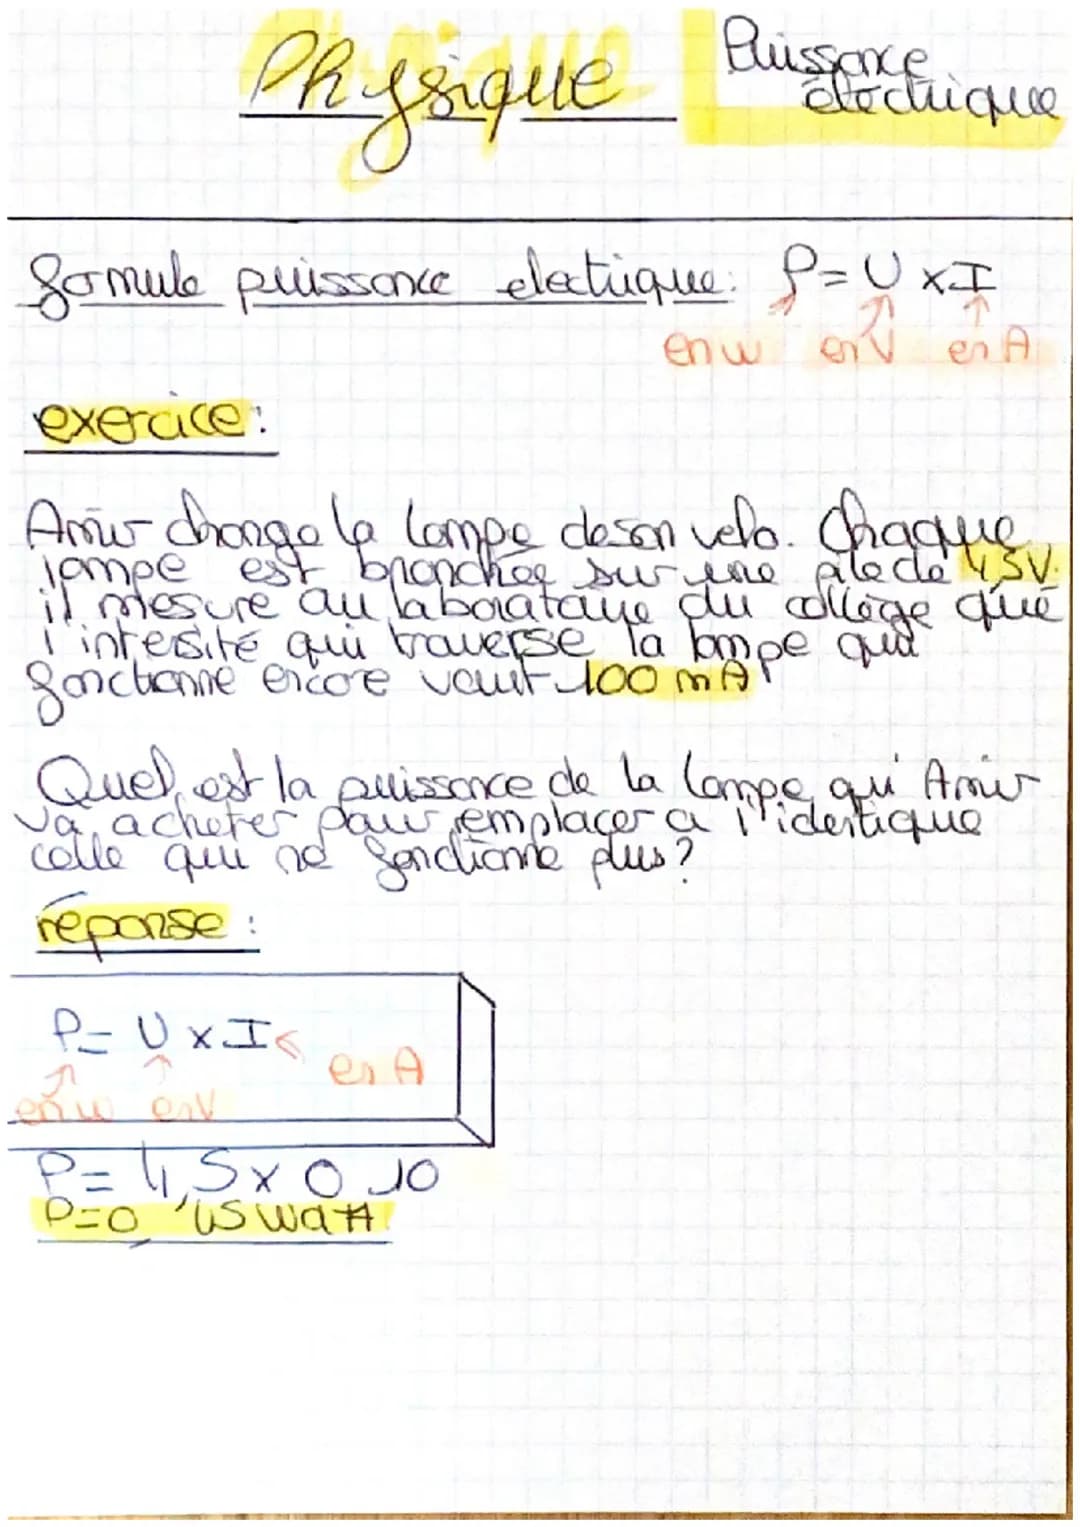 Physique
Puissance
électrique
formule puissance electrique: P=U x I
en w en V en A
exercice:
Amir change la lampe de son velo. Chaque
lampe est branchée sur une pile de 4,5V.
il mesure au laboratoire du collège que
l'intesité qui traverse la lampe qui
fonctionne encore vaut 100 mA
Quel est la puissance de la lampe qu'Amir
va acheter pour remplacer a l'identique
celle qui ne fonctionne plus?
réponse :
P= U x I
en A
en w en V
P= 4,5 x 0,10
P=0,45 watt